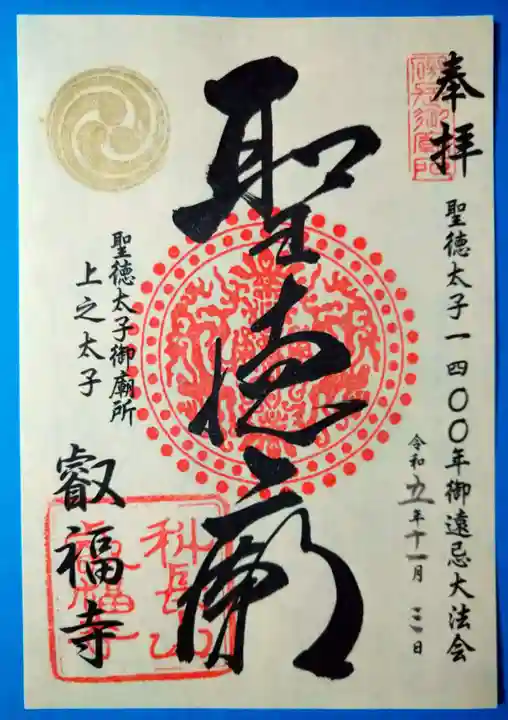 奉拝
聖徳太子一四〇〇年御遠忌大法会
令和五年十一月三日
聖徳廟
聖徳太子御廟所
上之太子
叡福寺